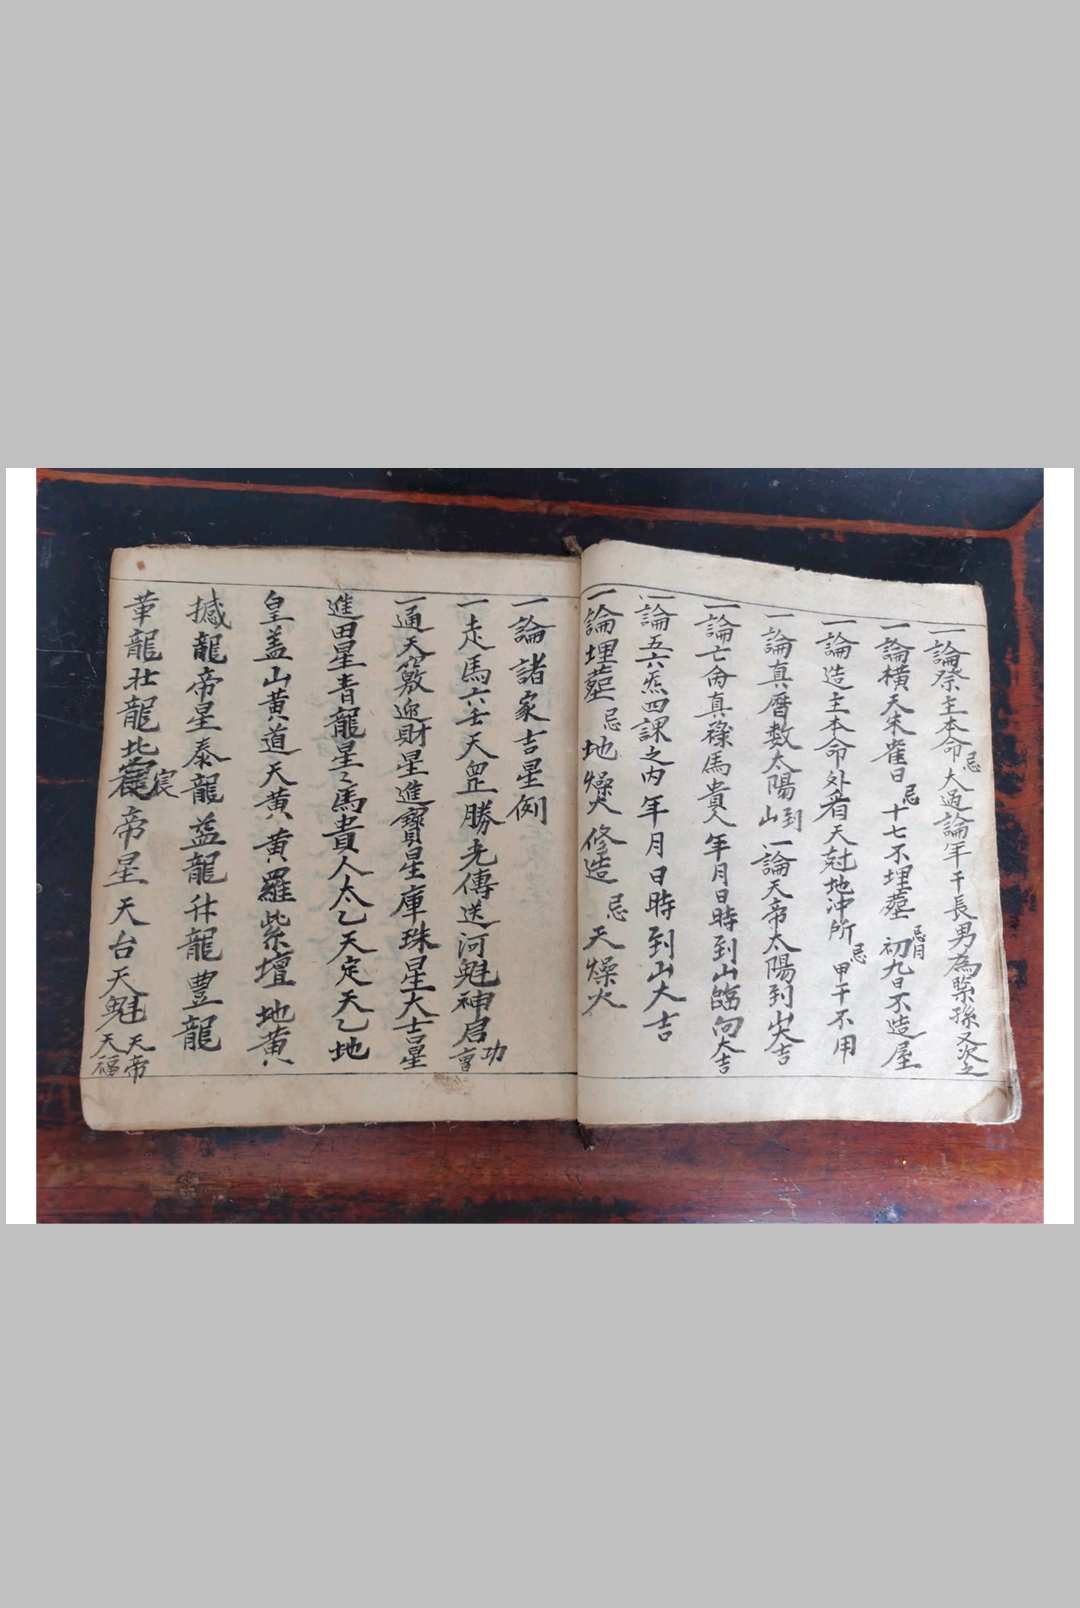 一論祭主本命忌大過論年干長男為孫又次之
一論橫天朱雀日忌十七不埋塟忌月初九日不造屋
一論造主本命外看天尅地冲所忌甲干不用
一論真曆數太陽到山一論天帝太陽到山大吉
一論七命真祿馬貴人年月日時到山臨向大吉
一論五六炁四課之內年月日時到山大吉
一論埋塟忌地燥火修造忌天燥火
一論諸家吉星例
一走馬六壬天罡勝光傳送河魁神后功曹
一通天竅迎財星進寶星庫珠星大吉星
進田星青龍星〻馬貴人太乙天定天乙地
皇盖山黃道天黃黃羅紫壇地黃
撼龍帝星泰龍益龍升龍豊龍
華龍壯龍宸帝星天台天魁天帝天福